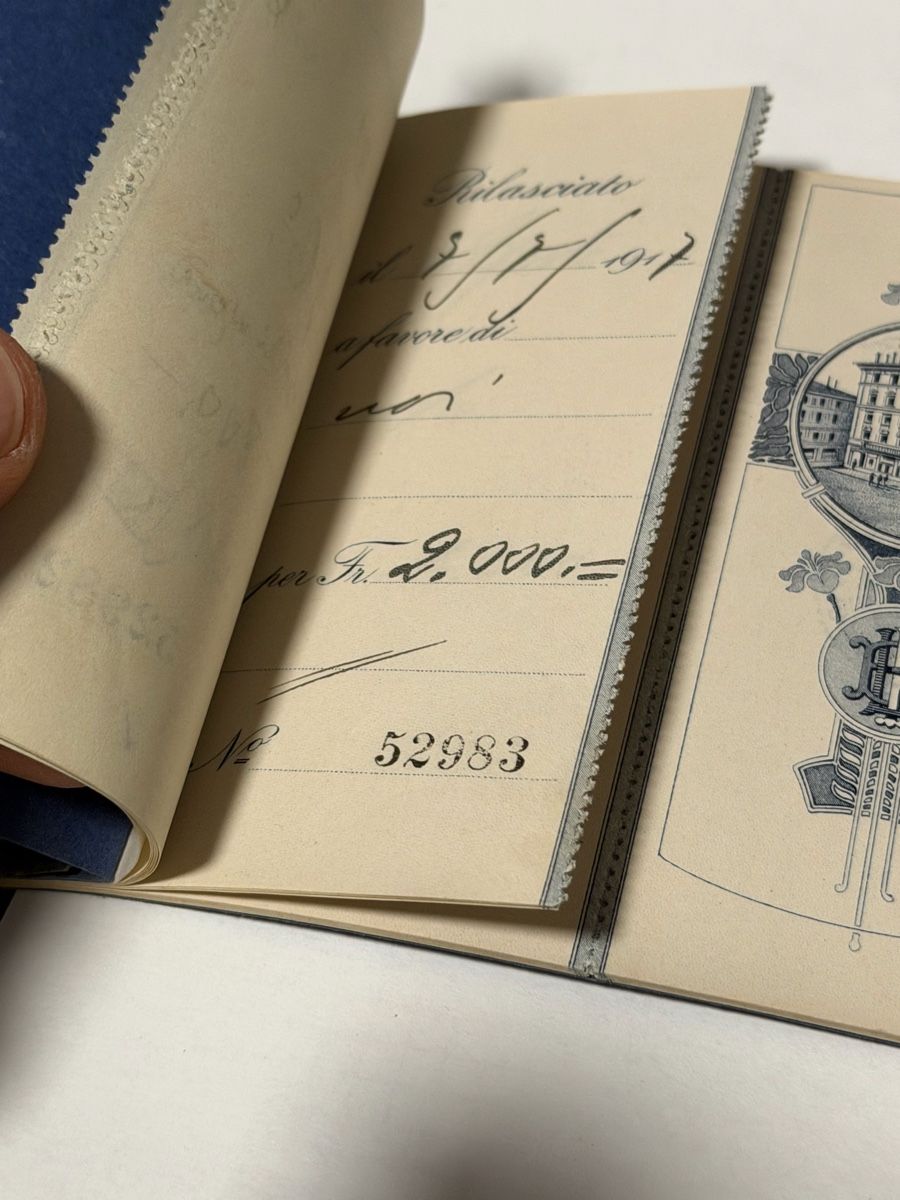 Rilasciato
il 7/7/ 1917
a favore di
noi
per Fr. 2.000.=
Nº 52983